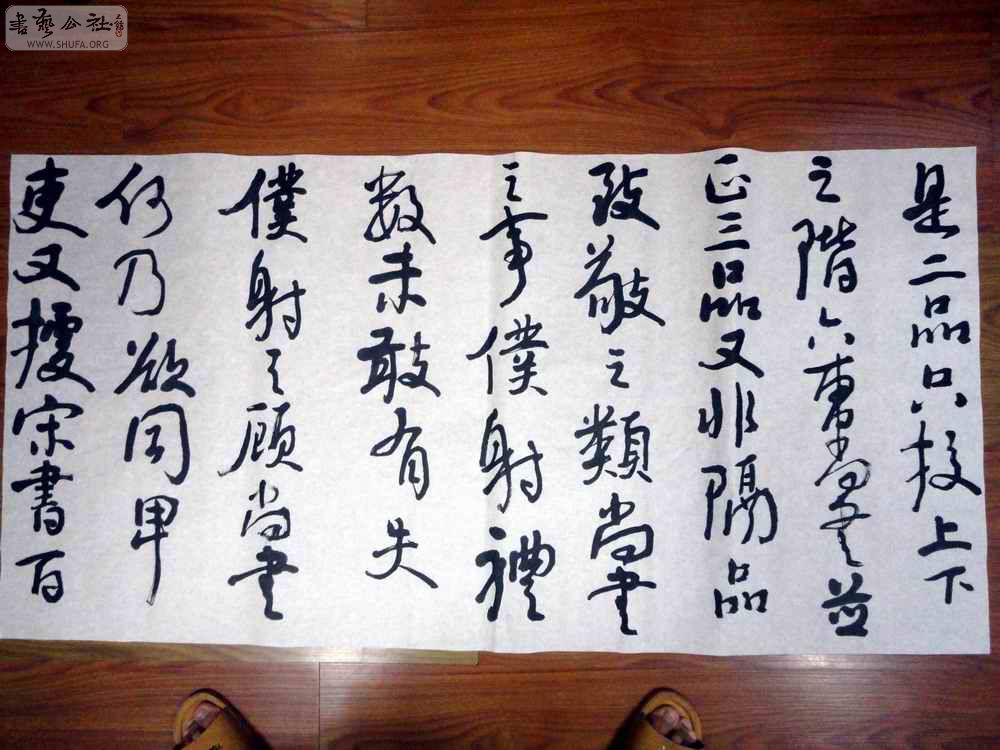 書藝公社
WWW.SHUFA.ORG
是二品只校上下
之階六曹尚書並
正三品又非隔品
致敬之類尚書
之事僕射禮
數未敢有失
僕射之顧尚書
何乃欲同卑
吏又據宋書百